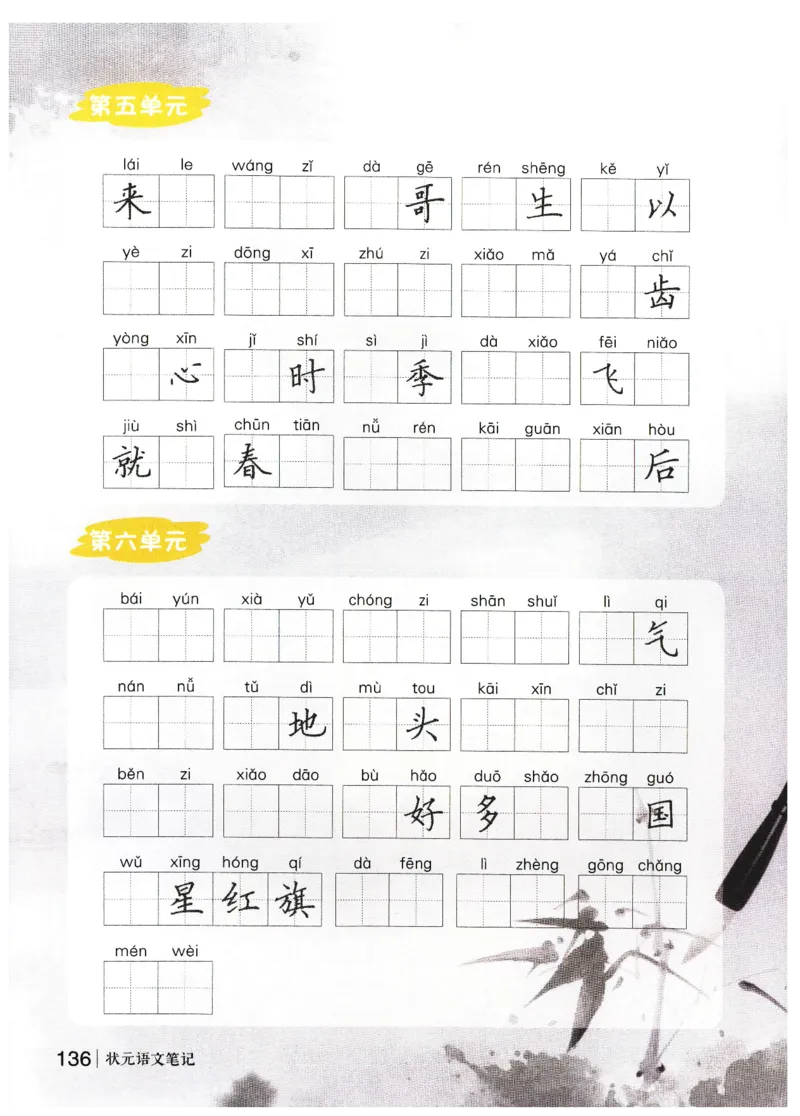 第五单元
lái le wáng zǐ dà gē rén shēng kě yǐ
来 哥 生 以
yè zi dōng xī zhú zi xiǎo mǎ yá chǐ
齿
yòng xīn jǐ shí sì jì dà xiǎo fēi niǎo
心 时 季 飞
jiù shì chūn tiān nǚ rén kāi guān xiān hòu
就 春 后
第六单元
bái yún xià yǔ chóng zi shān shuǐ lì qi
气
nán nǚ tǔ dì mù tou kāi xīn chǐ zi
地 头
běn zi xiǎo dāo bù hǎo duō shǎo zhōng guó
好 多 国
wǔ xīng hóng qí dà fēng lì zhèng gōng chǎng
星 红 旗
mén wèi
136 状元语文笔记